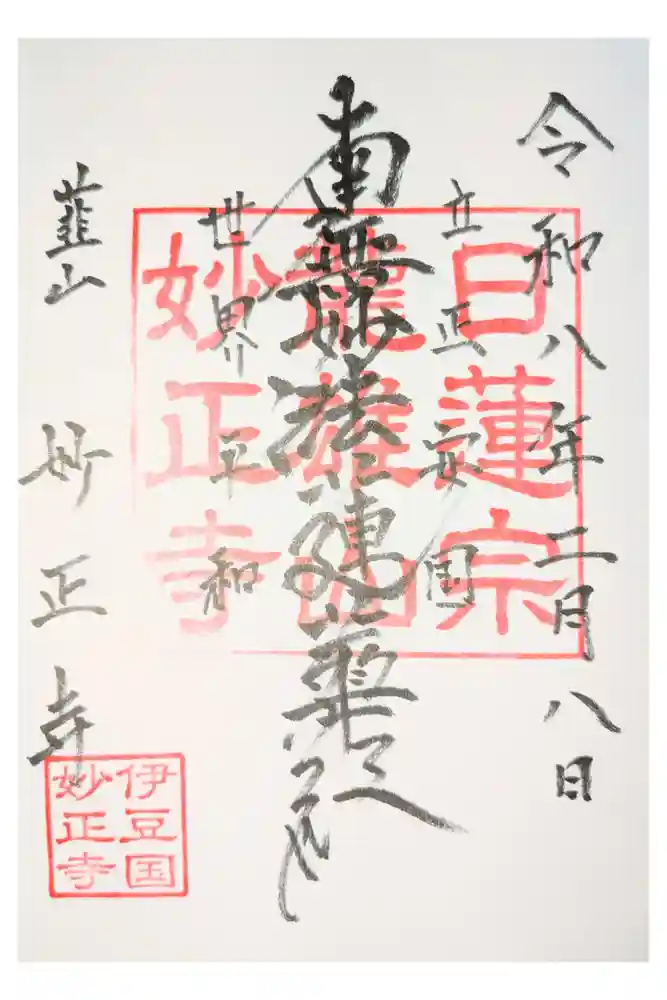 令和八年二月八日
立正安国
南無妙法蓮華経
世界平和
韮山 妙正寺
日蓮宗
龍雄山
妙正寺
伊豆国
妙正寺